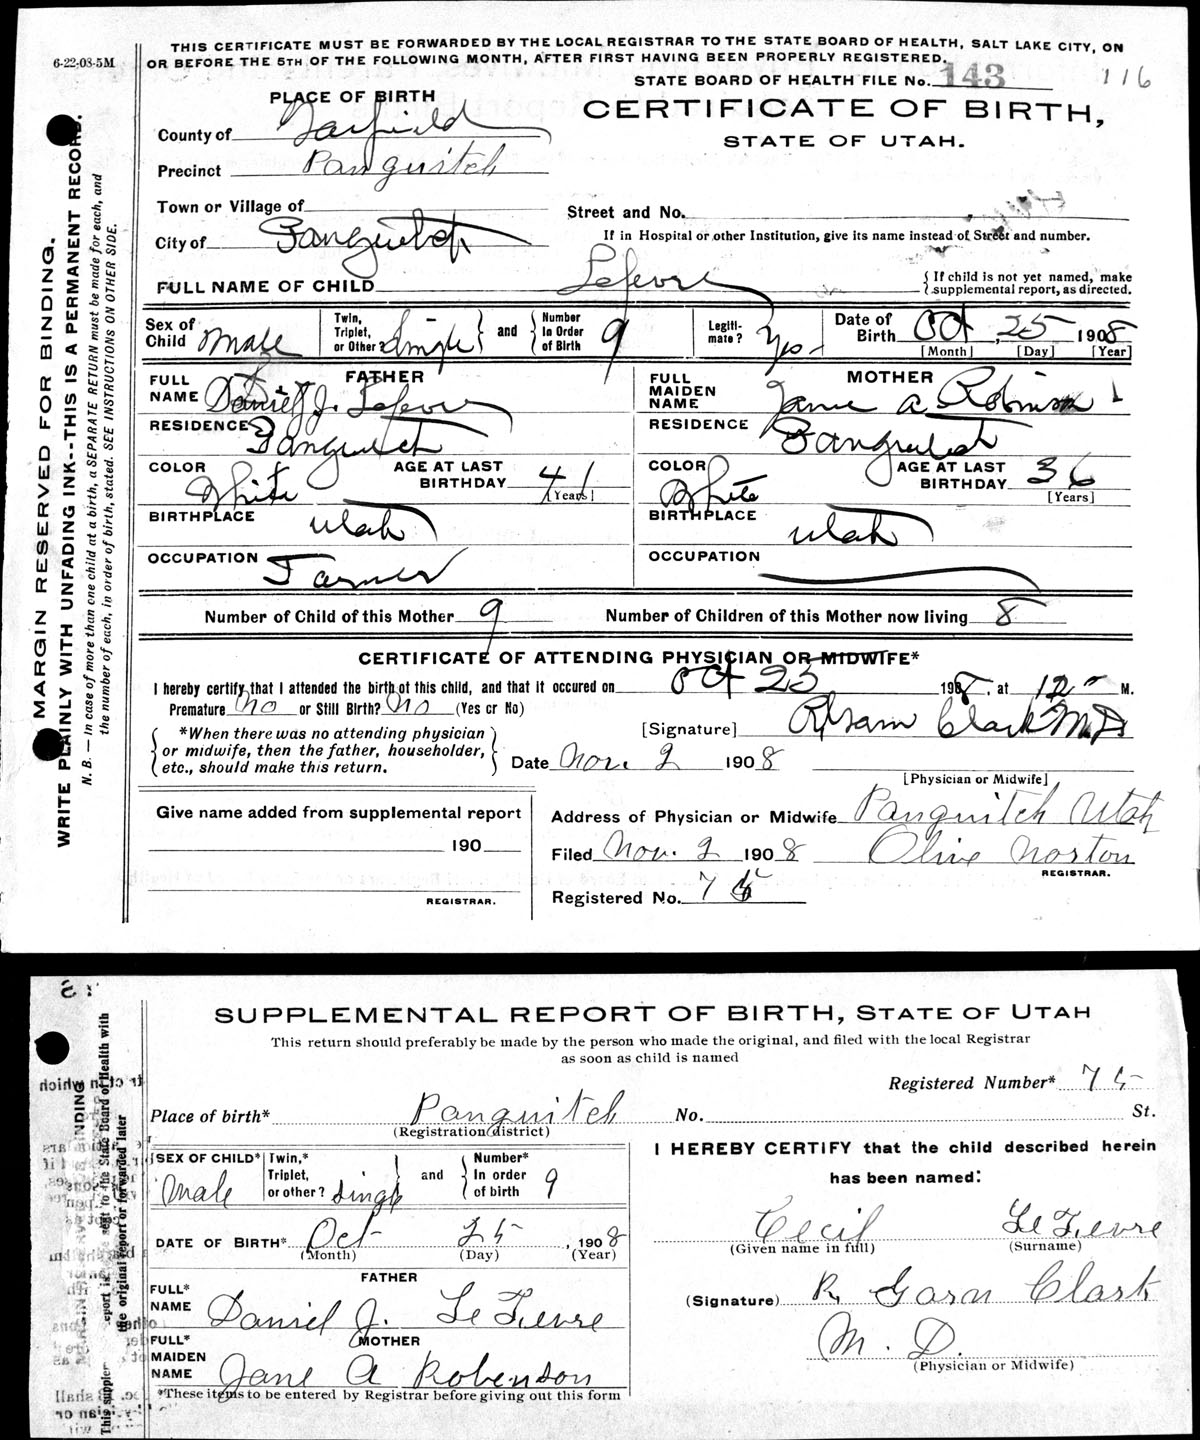 6-22-08-5M
THIS CERTIFICATE MUST BE FORWARDED BY THE LOCAL REGISTRAR TO THE STATE BOARD OF HEALTH, SALT LAKE CITY, ON
OR BEFORE THE 5TH OF THE FOLLOWING MONTH, AFTER FIRST HAVING BEEN PROPERLY REGISTERED.
STATE BOARD OF HEALTH FILE No. 143 116
PLACE OF BIRTH
CERTIFICATE OF BIRTH,
STATE OF UTAH.
County of Garfield
Precinct Panguitch
Town or Village of
Street and No.
City of Panguitch
If in Hospital or other Institution, give its name instead of Street and number.
FULL NAME OF CHILD Lefevre
{ If child is not yet named, make
{ supplemental report, as directed.
Sex of Child Male
Twin, Triplet, or Other? Single } and { Number In Order of Birth 9
Legiti-mate? Yes
Date of Birth Oct, 25 1908
[Month] [Day] [Year]
FATHER
FULL NAME Daniel J. Lefevre
RESIDENCE Panguitch
COLOR White AGE AT LAST BIRTHDAY 41 [Years]
BIRTHPLACE Utah
OCCUPATION Farmer
MOTHER
FULL MAIDEN NAME Jane A. Robinson
RESIDENCE Panguitch
COLOR White AGE AT LAST BIRTHDAY 36 [Years]
BIRTHPLACE Utah
OCCUPATION
Number of Child of this Mother 9 Number of Children of this Mother now living 8
CERTIFICATE OF ATTENDING PHYSICIAN OR MIDWIFE*
I hereby certify that I attended the birth of this child, and that it occured on Oct 25 1908, at 12 M.
Premature No or Still Birth? No (Yes cr No)
[Signature] R Garn Clark M.D.
*When there was no attending physician
or midwife, then the father, householder,
etc., should make this return.
Date Nov. 2 1908
[Physician or Midwife]
Give name added from supplemental report
190
REGISTRAR.
Address of Physician or Midwife Panguitch Utah
Filed Nov. 2 1908 Olive Norton
REGISTRAR.
Registered No. 75
MARGIN RESERVED FOR BINDING.
WRITE PLAINLY WITH UNFADING INK--THIS IS A PERMANENT RECORD.
N. B. — In case of more than one child at a birth, a SEPARATE RETURN must be made for each, and
the number of each, in order of birth, stated. SEE INSTRUCTIONS ON OTHER SIDE.
SUPPLEMENTAL REPORT OF BIRTH, STATE OF UTAH
This return should preferably be made by the person who made the original, and filed with the local Registrar
as soon as child is named
Registered Number* 75
Place of birth* Panguitch No. St.
(Registration district)
SEX OF CHILD* Male
Twin,* Triplet, or other? Single } and { Number* In order of birth 9
DATE OF BIRTH* Oct 25, 1908
(Month) (Day) (Year)
FATHER
FULL* NAME Daniel J. Le Fevre
MOTHER
FULL* MAIDEN NAME Jane A Robenson
*These items to be entered by Registrar before giving out this form
I HEREBY CERTIFY that the child described herein
has been named:
Cecil Le Fevre
(Given name in full) (Surname)
(Signature) R. Garn Clark
M. D.
(Physician or Midwife)
the original report or forwarded later